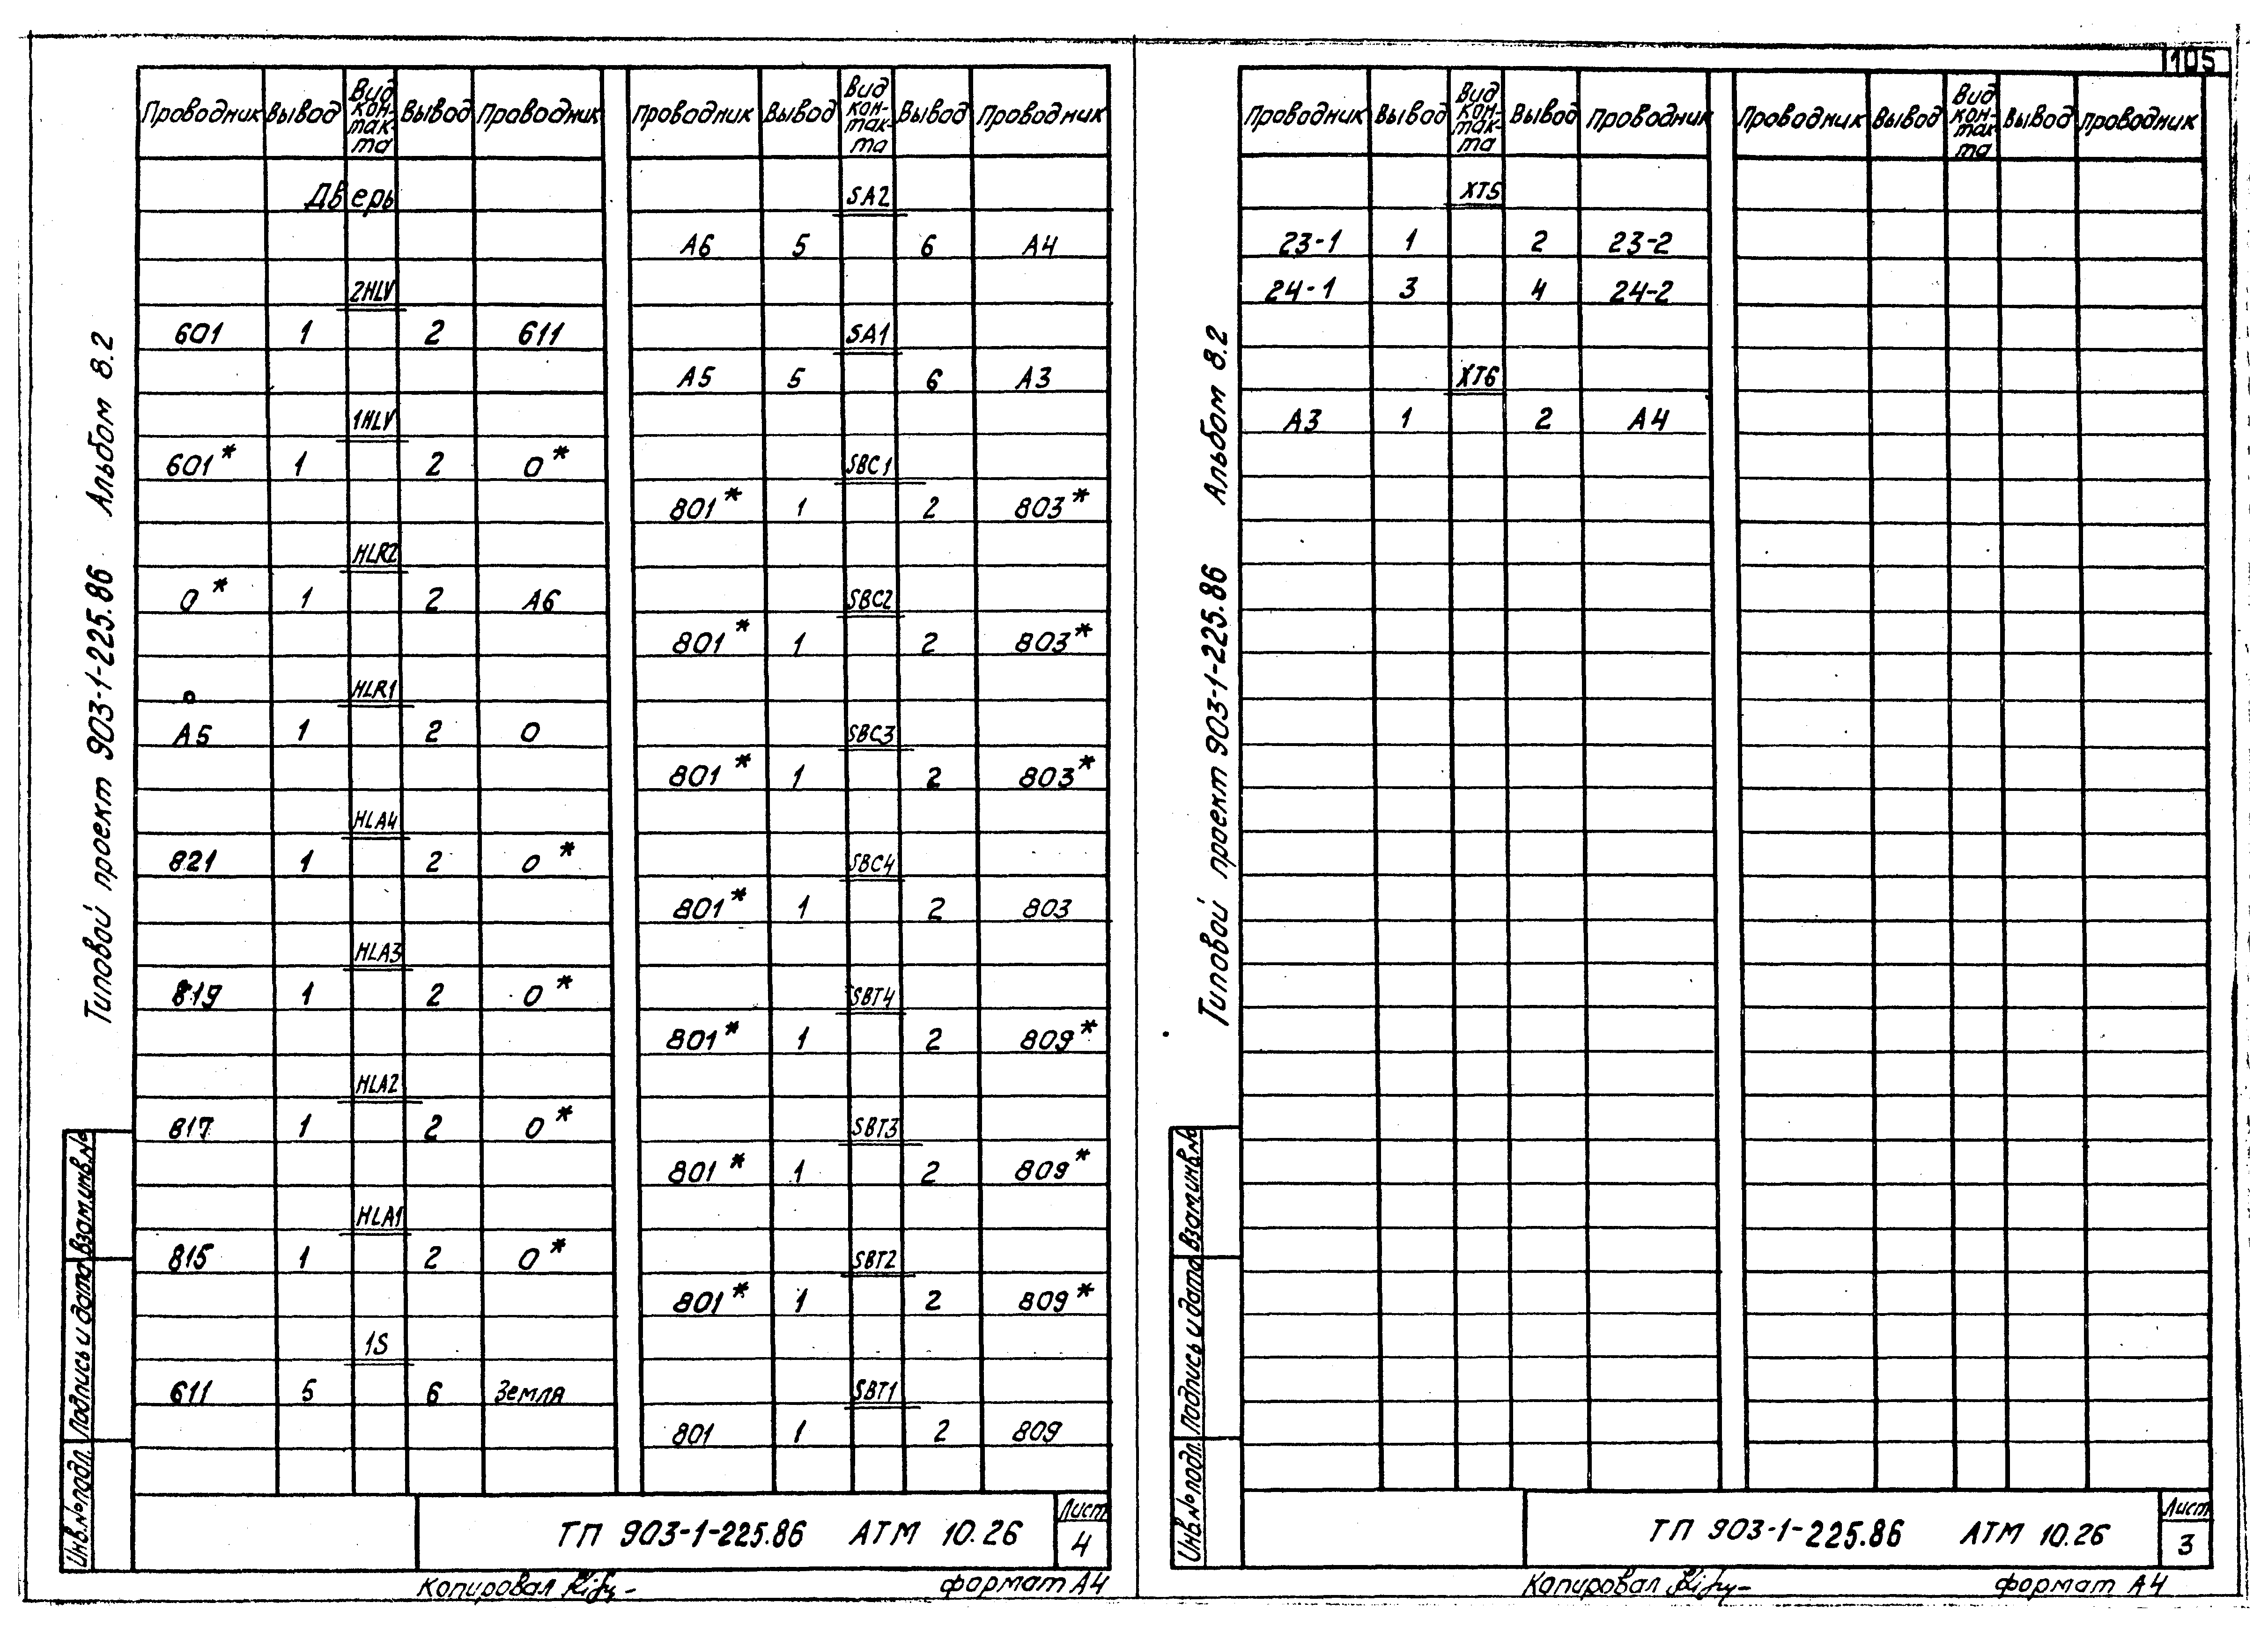 105
Типовой проект 903-1-225.86 Альбом 8.2
Проводник Вывод Вид кон-так-та Вывод Проводник
Дверь
2HLV
601 1 2 611
1HLV
601* 1 2 0*
HLR2
0* 1 2 А6
HLR1
А5 1 2 0
HLA4
821 1 2 0*
HLA3
819 1 2 0*
HLA2
817 1 2 0*
HLA1
815 1 2 0*
1S
611 5 6 Земля
Проводник Вывод Вид кон-так-та Вывод Проводник
SA2
А6 5 6 А4
SA1
А5 5 6 А3
SBC1
801* 1 2 803*
SBC2
801* 1 2 803*
SBC3
801* 1 2 803*
SBC4
801* 1 2 803
SBT4
801* 1 2 809*
SBT3
801* 1 2 809*
SBT2
801* 1 2 809*
SBT1
801 1 2 809
Инв.№ подл. Подпись и дата Взам.инв.№
ТП 903-1-225.86 АТМ 10.26
Лист
4
Копировал
формат А4
Типовой проект 903-1-225.86 Альбом 8.2
Проводник Вывод Вид кон-так-та Вывод Проводник
XT5
23-1 1 2 23-2
24-1 3 4 24-2
XT6
А3 1 2 А4
Проводник Вывод Вид кон-так-та Вывод Проводник
Инв.№ подл. Подпись и дата Взам.инв.№
ТП 903-1-225.86 АТМ 10.26
Лист
3
Копировал
формат А4